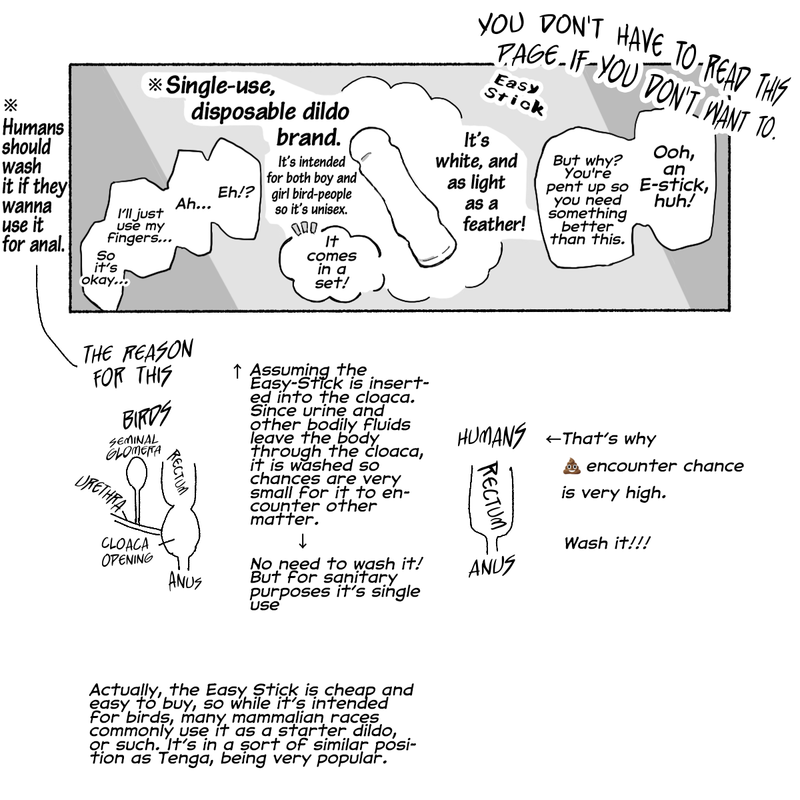 YOU DON'T HAVE TO READ THIS
PAGE IF YOU DON'T WANT TO.
Ooh,
an
E-stick,
huh!
But why?
You're
pent up so
you need
something
better
than this.
Easy
Stick
※Single-use,
disposable dildo
brand.
It's intended
for both boy and
girl bird-people
so it's unisex.
It's
white, and
as light
as a
feather!
It
comes
in a
set!
Eh!?
Ah...
I'll just
use my
fingers...
So
it's
okay...
※
Humans
should
wash
it if they
wanna
use it
for anal.
THE REASON
FOR THIS
BIRDS
SEMINAL
GLOMERA
RECTUM
URETHRA
CLOACA
OPENING
ANUS
↑ Assuming the
Easy-Stick is insert-
ed into the cloaca.
Since urine and
other bodily fluids
leave the body
through the cloaca,
it is washed so
chances are very
small for it to en-
counter other
matter.
↓
No need to wash it!
But for sanitary
purposes it's single
use
HUMANS
RECTUM
ANUS
←That's why
💩 encounter chance
is very high.
Wash it!!!
Actually, the Easy Stick is cheap and
easy to buy, so while it's intended
for birds, many mammalian races
commonly use it as a starter dildo,
or such. It's in a sort of similar posi-
tion as Tenga, being very popular.